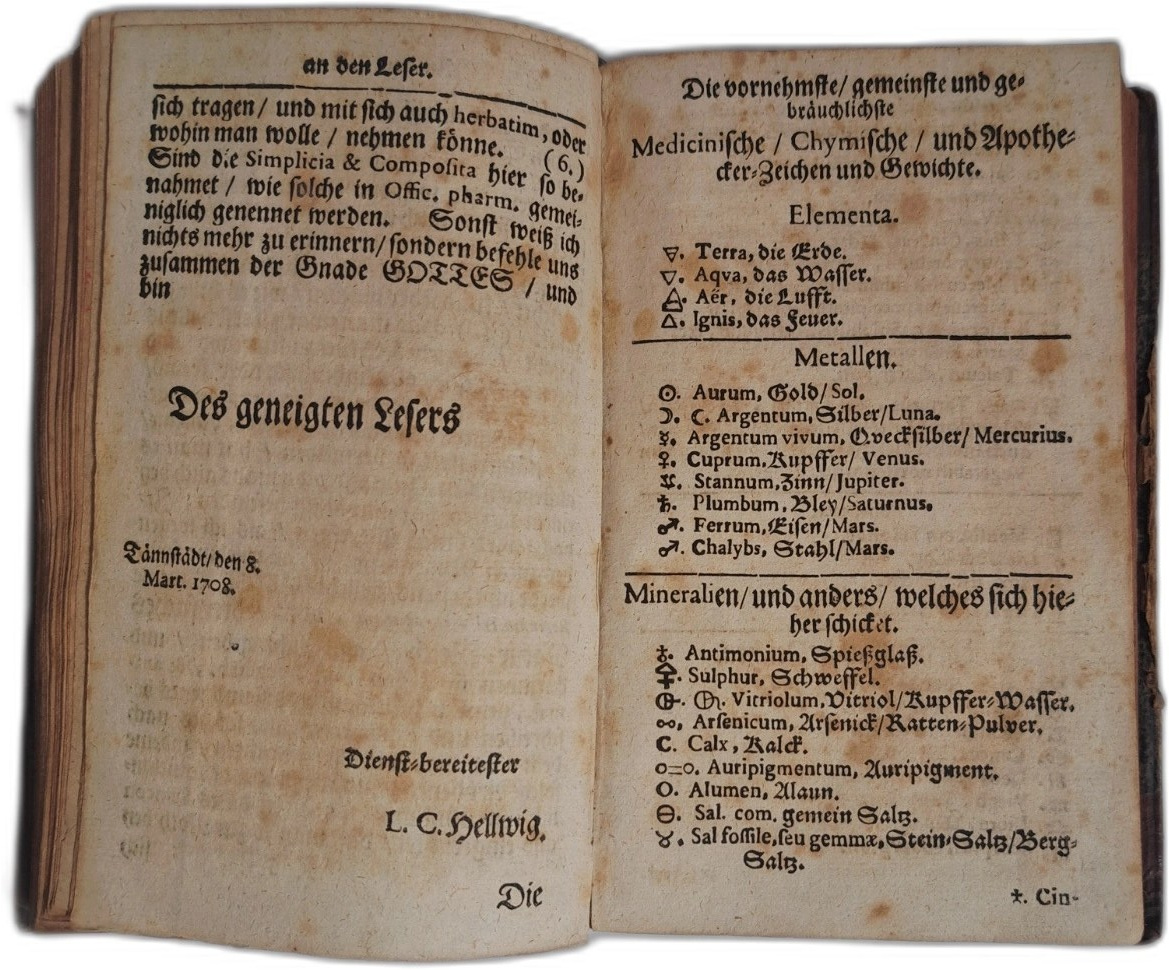 an den Leser.
sich tragen / und mit sich auch herbatim, oder
wohin man wolle / nehmen könne. (6.)
Sind die Simplicia & Composita hier so be-
nahmet / wie solche in Offic. pharm. gemei-
niglich genennet werden. Sonst weiß ich
nichts mehr zu erinnern / sondern befehle uns
zusammen der Gnade GOTTES / und
bin
Des geneigten Lesers
Tännstädt / den 8.
Mart. 1708.
Dienst-bereitester
L. C. Hellwig.
Die
Die vornehmste / gemeinste und ge-
bräuchlichste
Medicinische / Chymische / und Apothe-
cker-Zeichen und Gewichte.
Elementa.
🜃. Terra, die Erde.
🜄. Aqva, das Wasser.
🜁. Aër, die Lufft.
🜂. Ignis, das Feuer.
Metallen.
☉. Aurum, Gold / Sol.
☽. ☾. Argentum, Silber / Luna.
☿. Argentum vivum, Qvecksilber / Mercurius.
♀. Cuprum, Kupffer / Venus.
♃. Stannum, Zinn / Jupiter.
♄. Plumbum, Bley / Saturnus.
♂. Ferrum, Eisen / Mars.
♂. Chalybs, Stahl / Mars.
Mineralien / und anders / welches sich hie-
her schicket.
♁. Antimonium, Spießglaß.
🜍. Sulphur, Schweffel.
🜖. Vitriolum, Vitriol / Kupffer-Wasser.
Arsenicum, Arsenick / Ratten-Pulver.
C. Calx, Kalck.
o=o. Auripigmentum, Auripigment.
O. Alumen, Alaun.
🜔. Sal. com. gemein Saltz.
♉. Sal fossile, seu gemmæ, Stein-Saltz / Berg-
Saltz.
Cin-